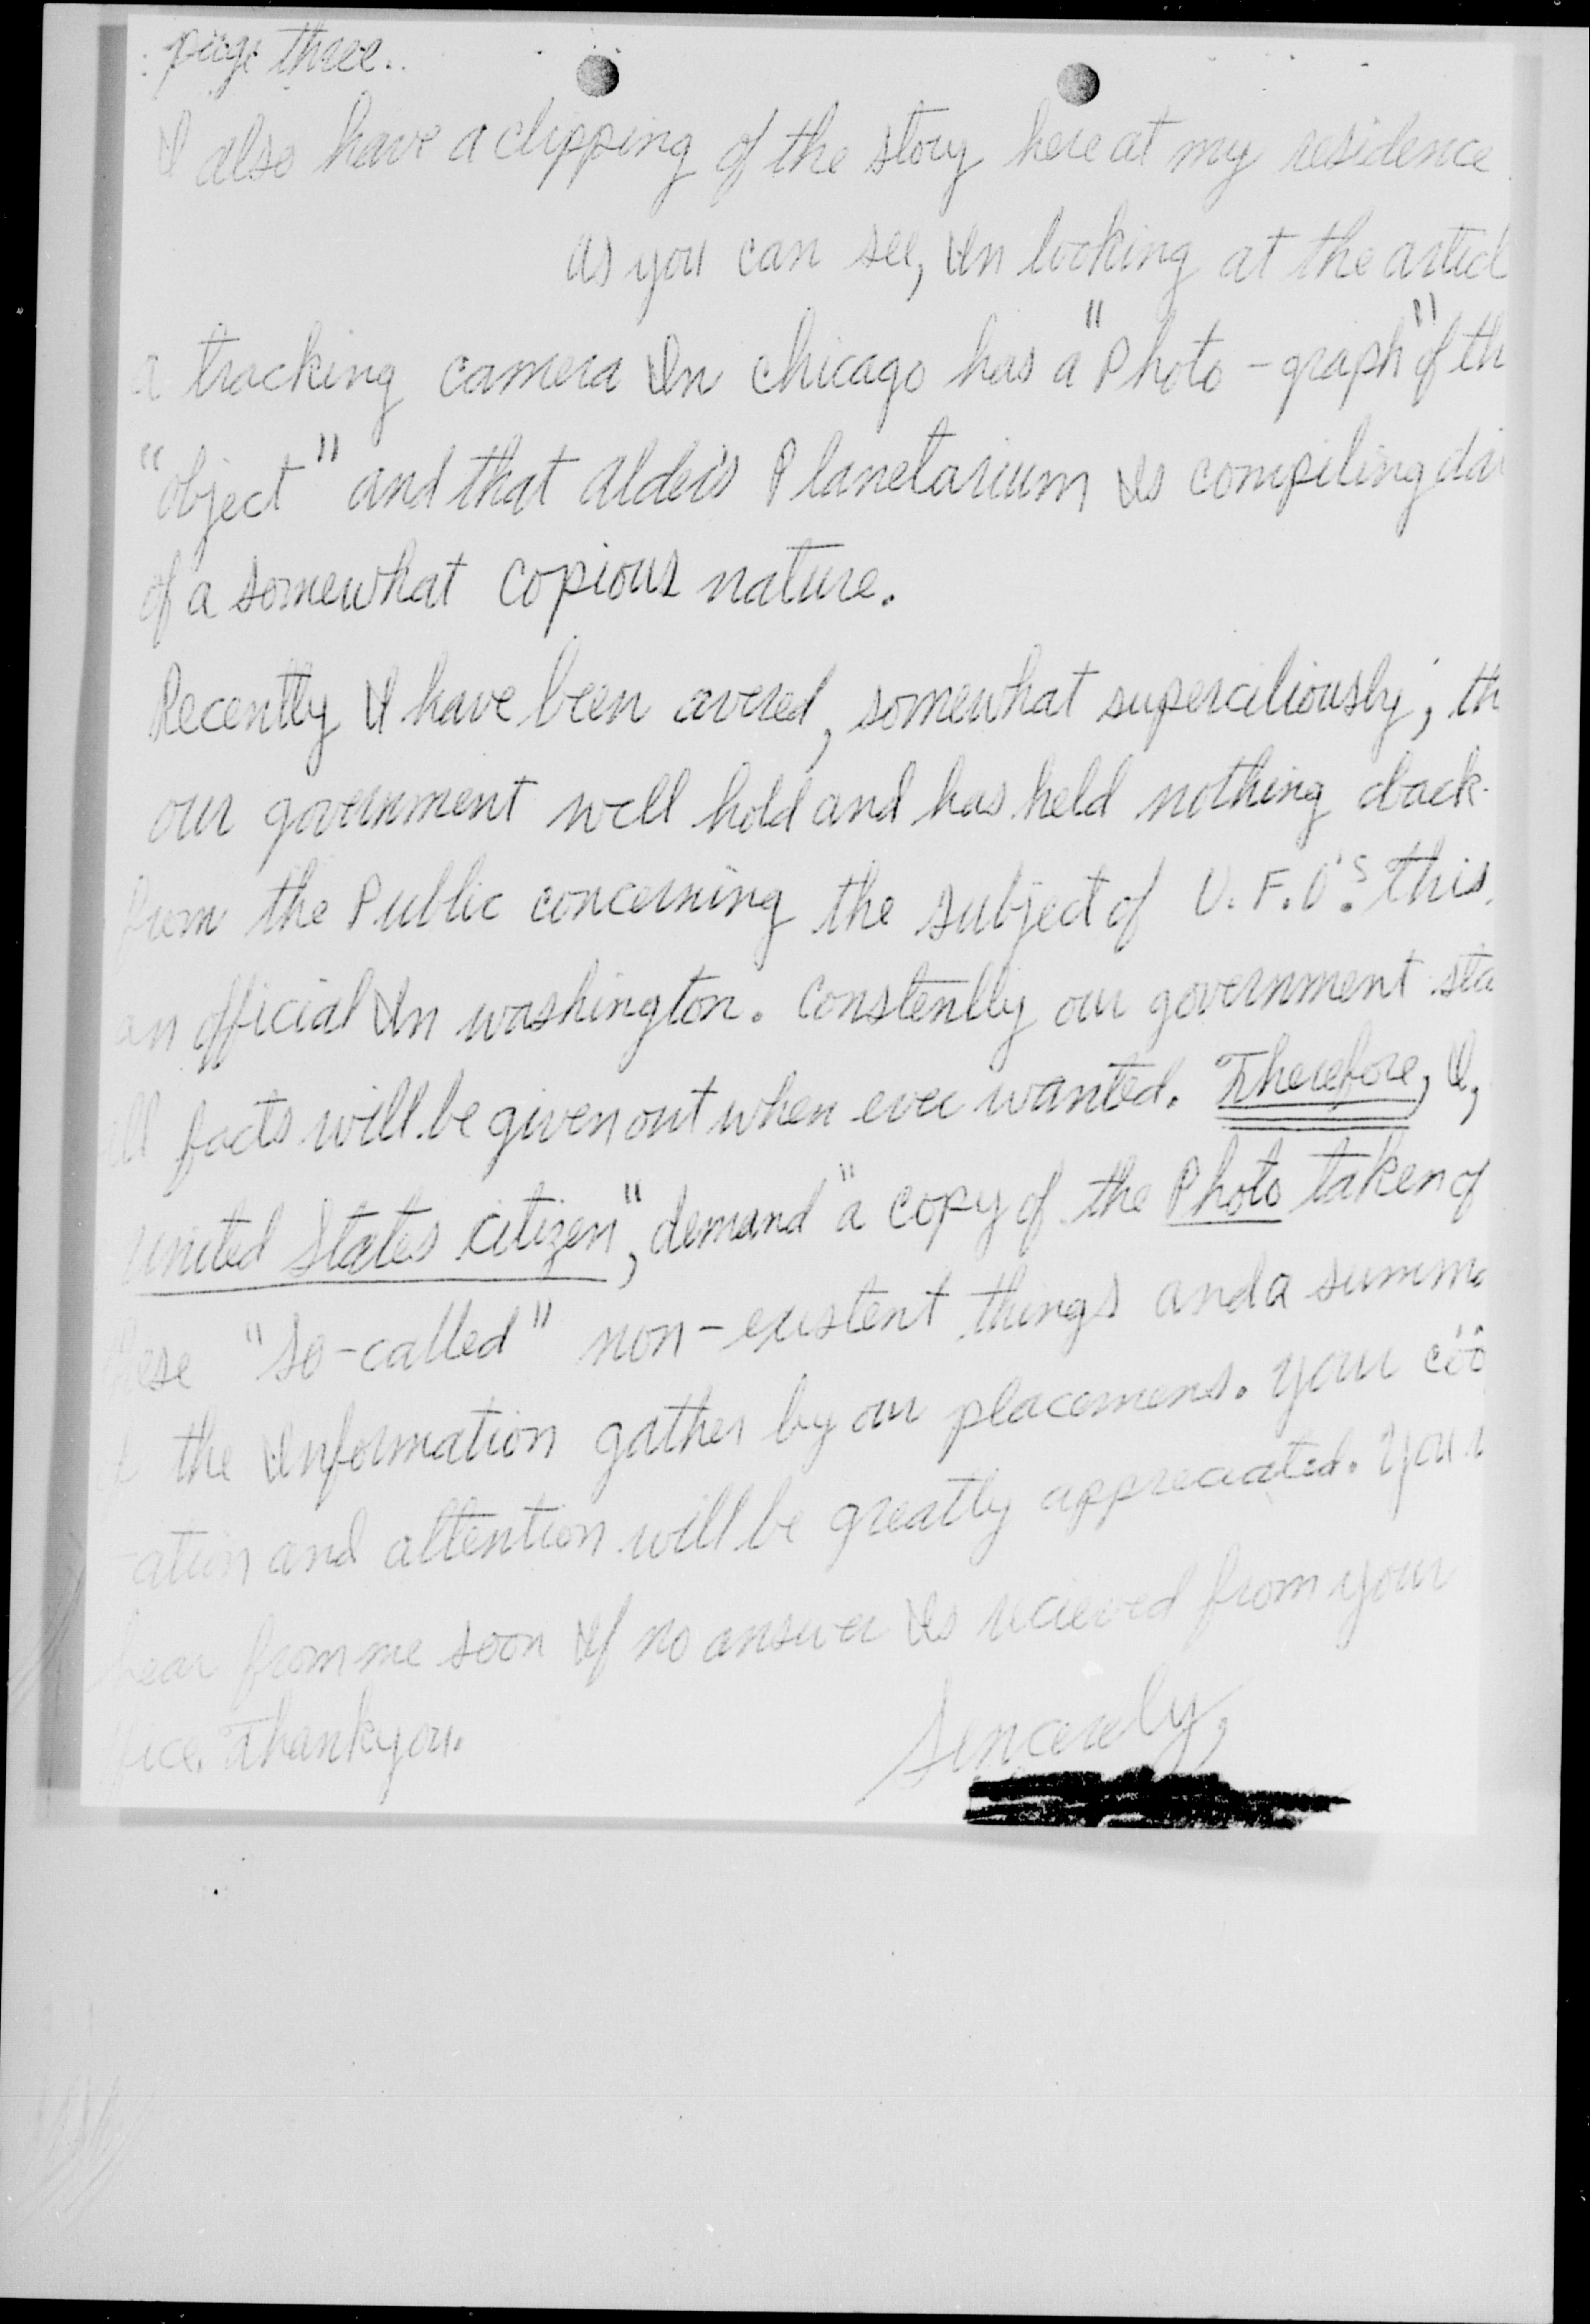 page three..
I also have a clipping of the story here at my residence
as you can see, In looking at the articl
a tracking camera In chicago has a "Photo-graph" of th
"object" and that Alder's Planetarium Is compiling da
of a somewhat copious nature.
Recently I have been avered, somewhat superciliously, th
our government will hold and has held nothing back
from the Public concerning the subject of U.F.O's. this
an official In washington. Constently our government sta
ll facts will be given out when ever wanted. Therefore, I,
united States citizen", demand "a copy of the Photo taken of
hese "so-called" non-existent things and a summa
the Information gather by our placemens. your coo
ation and attention will be greatly appreciated. You
hear from me soon If no answer Is recieved from your
ffice. Thank you.
Sincerely,